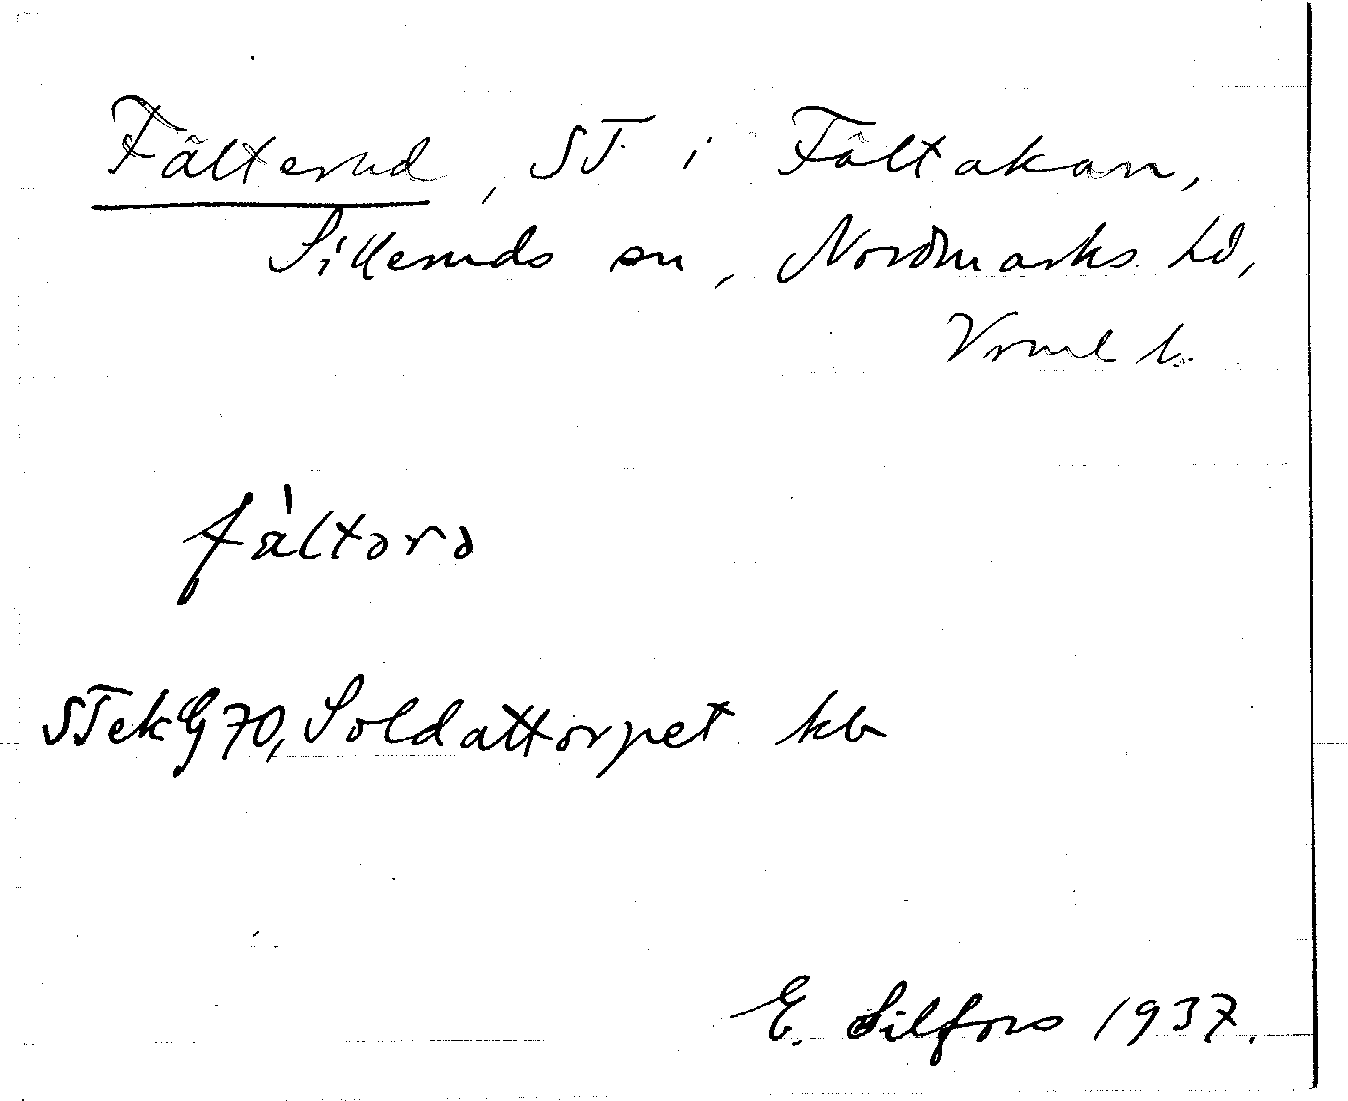 Fälterud, ST. i Fältakan,
Silleruds sn, Nordmarks hd,
Vrml l.
fàltərə
STekG70, Soldattorpet kb
E. Silfors 1937.